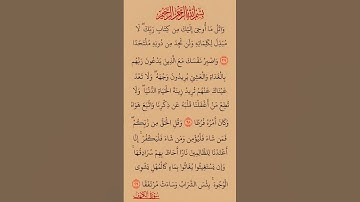 بِسْمِ اللَّهِ الرَّحْمَٰنِ الرَّحِيمِ
وَاتْلُ مَا أُوحِيَ إِلَيْكَ مِن كِتَابِ رَبِّكَ ۖ لَا
مُبَدِّلَ لِكَلِمَاتِهِ وَلَن تَجِدَ مِن دُونِهِ مُلْتَحَدًا
﴿٢٧﴾ وَاصْبِرْ نَفْسَكَ مَعَ الَّذِينَ يَدْعُونَ رَبَّهُم
بِالْغَدَاةِ وَالْعَشِيِّ يُرِيدُونَ وَجْهَهُ ۖ وَلَا تَعْدُ
عَيْنَاكَ عَنْهُمْ تُرِيدُ زِينَةَ الْحَيَاةِ الدُّنْيَا ۖ وَلَا
تُطِعْ مَنْ أَغْفَلْنَا قَلْبَهُ عَن ذِكْرِنَا وَاتَّبَعَ هَوَاهُ
وَكَانَ أَمْرُهُ فُرُطًا ﴿٢٨﴾ وَقُلِ الْحَقُّ مِن رَّبِّكُمْ ۖ
فَمَن شَاءَ فَلْيُؤْمِن وَمَن شَاءَ فَلْيَكْفُرْ ۚ إِنَّا
أَعْتَدْنَا لِلظَّالِمِينَ نَارًا أَحَاطَ بِهِمْ سُرَادِقُهَا ۚ
وَإِن يَسْتَغِيثُوا يُغَاثُوا بِمَاءٍ كَالْمُهْلِ يَشْوِي
الْوُجُوهَ ۚ بِئْسَ الشَّرَابُ وَسَاءَتْ مُرْتَفَقًا ﴿٢٩﴾
سُورَةُ الكَهْفِ